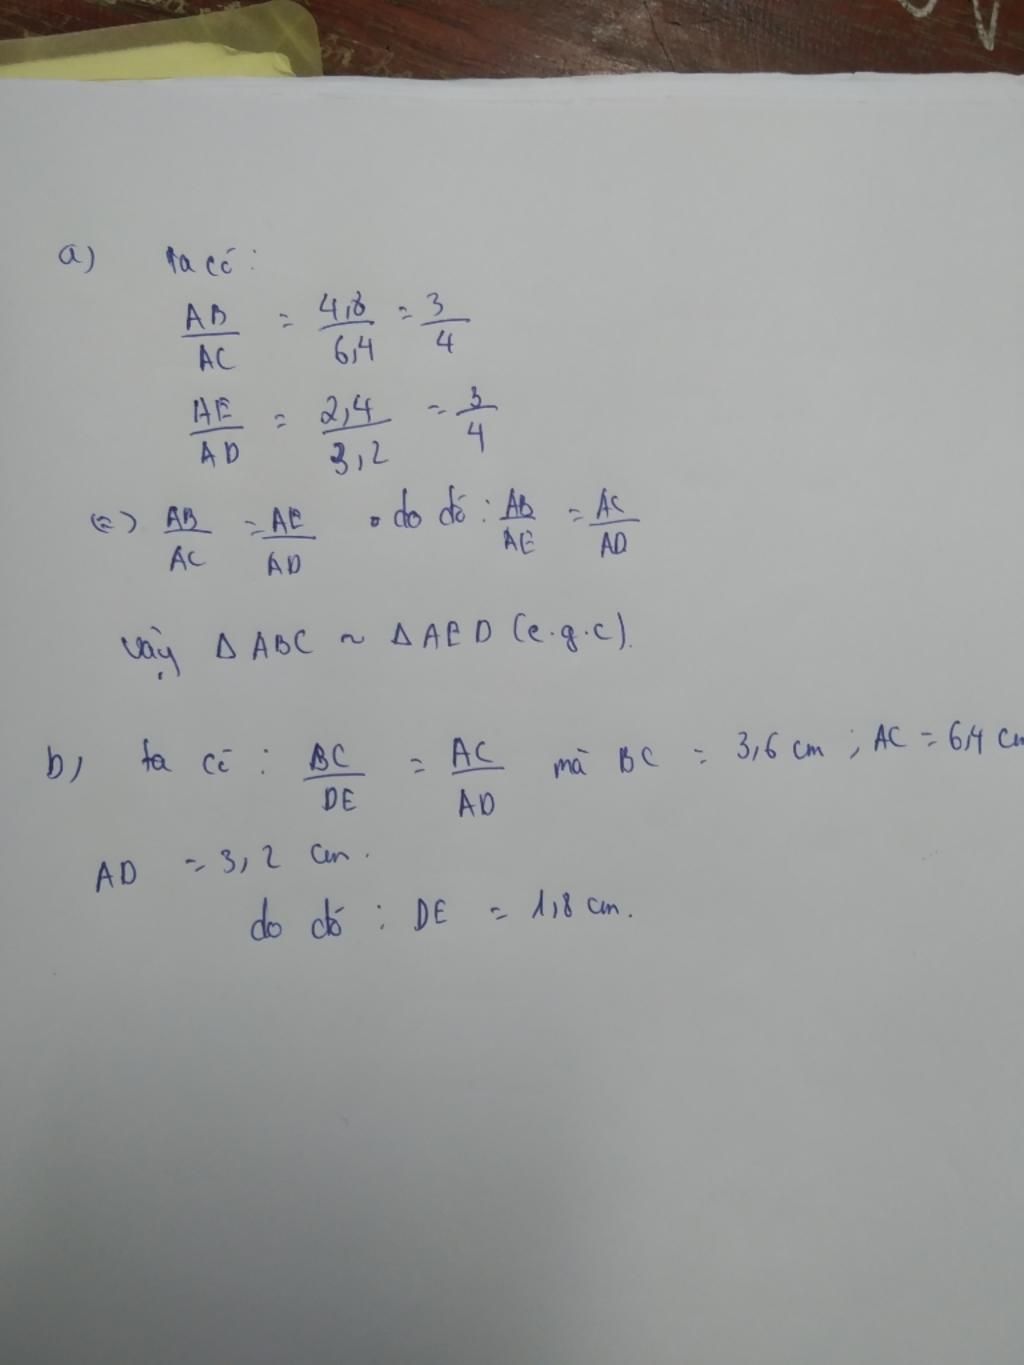 a) ta có :
AB/AC = 4,8/6,4 = 3/4
AE/AD = 2,4/3,2 = 3/4
(=) AB/AC = AE/AD . do đó : AB/AE = AC/AD
Vậy Δ ABC ~ Δ AED (c.g.c).
b, ta có : BC/DE = AC/AD mà BC = 3,6 cm ; AC = 6,4 cm
AD = 3,2 cm .
do đó : DE = 1,8 cm.